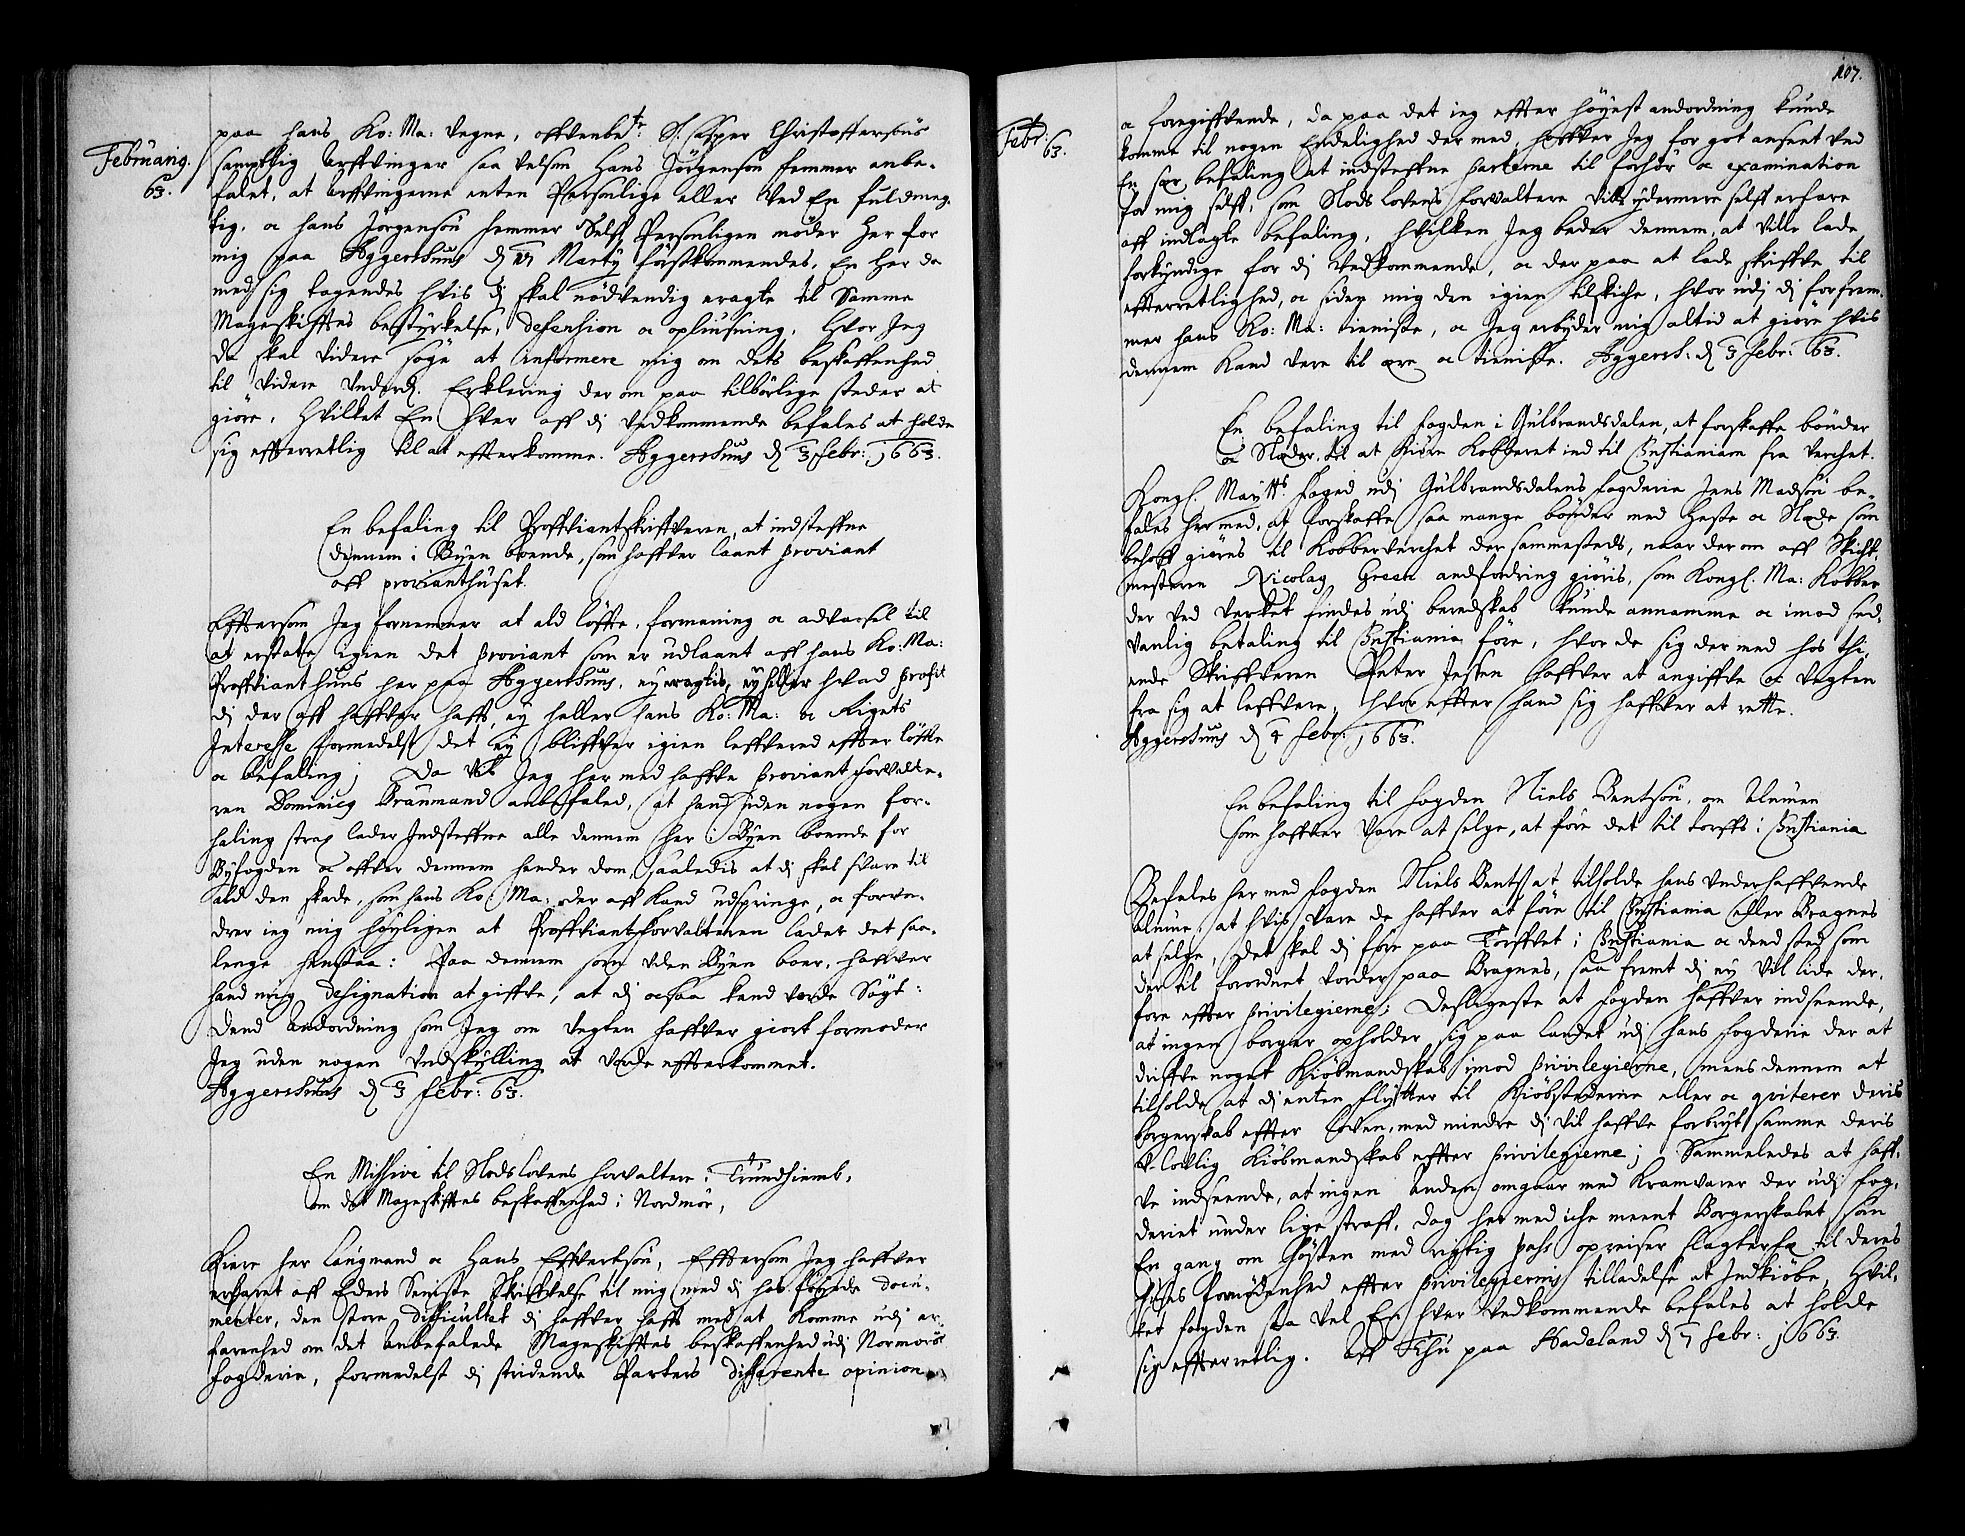 Februarij.
63.
paa hans Ko: Ma: vegne, offvenbete: S: Casper Christoffersöns
samptlig Arffvinger saa velsom Hans Jörgensön hemmer anbe-
falet, at Arffvingerne enten Personlige eller Ved En fuldmeg-
tig, oc hans Jörgensön hemmer Self Personligen möder her for
mig paa Aggershuus d: Martij förstkommendes, En hver da
med sig tagendes hvis di skal nödvendig eragte til Samme
Mageskifftes bestyrkelse, defension oc opliusning, hvor Jeg
da skal videre söge at informere mig om dets beskaffenhed
til Videre Underd: Erklering der om paa tilbörlige steder at
giöre. Hvilket En hver aff di vedkommende befales at holde
sig effterretlig til at effterkomme. Aggershuus d: 3 febr: 1663.
En befaling til Proffviantskriffveren, at indsteffne
dennem i Byen boende, som haffver laant Proviant
aff provianthuset.
Efftersom Jeg fornemmer at ald löffte, formaning oc advarsel til
at erstate igien det Proviant som er udlaant aff hans Ko: Ma:
Proffvianthuus her paa Aggershuus, ey eragtis, ey heller hvad profit
di der aff haffver hafft, ey heller hans Ko: Ma: oc Rigets
Interesse formedelst det ey bliffver igien leffvered effter löffte
oc befaling; Da vil Jeg her med haffve Proviant forvalte-
ren Dominicg Braunmand anbefaled, at hand uden nogen for-
haling strax lader Indsteffne alle dennem her i Byen boende for
Byfogden oc offver dennem hender dom, saaledis at di skal svare til
ald den skade, som hans Ko: Ma: der aff kand udspringe, oc forun-
drer ieg mig höyligen at Proffviantforvalteren lader det saa-
lenge henstaa: Paa dennem som uden Byen boer, haffver
hand mig designation at giffve, at di ocsaa kand vorde Sögt:
Dend Andordning som Jeg om Vegten haffver giort formoder
Jeg uden nogen Undskylling at vorde effterkommet.
Aggershuus d: 3 febr: 63.
En Missive til Slodslovens forvaltere i Trundhiemb,
om det Mageskifftes beskaffenhed i Nordmör,
Kiere her Laugmand oc Hans Effvertsön, Efftersom Jeg haffver
erfaret aff Eders Seniste Skriffvelse til mig med di hos föyede docu-
menter, den store difficultet di haffver hafft med at komme udj er-
farenhed om det anbefalede Mageskifftes beskaffenhed udj Normörs
fogderie, formedelst di stridende Parters differente opinion
107.
Febr:
63.
oc foregiffvende, da paa det ieg effter höyest andordning kunde
komme til nogen Endelighed der med, haffver Jeg for got anseet ved
En sær befaling at indsteffne parterne til forhör oc examination
for mig self, som Slods lovens forvaltere vill ydermere self erfare
aff indlagte befaling, hvilken Jeg beder dennem, at ville lade
forkyndige for di Vedkommende, oc der paa at lade skriffve til
effterretlighed, oc siden mig den igien tilskiche, hvor udj di forfrem-
mer hans Ko: Ma: tieniste, oc Jeg erbyder mig altid at giöre hvis
dennem Kand vere til ære oc tieniste. Aggersh: d: 3 febr: 63.
En befaling til fogden i Gulbrandsdalen, at forskaffe bönder
oc Slæder, til at kiöre kobberet ind til Christianiam fra Verchet.
Kongl: Maytts: foged udj Gulbrandsdalens fogderie Jens Madsön be-
fales her med, at forskaffe saa mange bönder med heste oc Slæde som
behoff giöres til kobberverchet der sammesteds, naar der om aff Skicht-
mesteren Nicolag Green andfordring giöris, som Kongl: Ma: Kobber
der ved Verket findes udj beredskab kunde annamme oc imod sed-
vanlig betaling til Christiania före, hvor de sig der med hos thi-
ende Skriffveren Peter Jessen haffver at angiffve oc Vegten
fra sig at leffvere, hvor effter hand sig haffver at rette.
Aggershuus d: 4 febr: 1663.
En befaling til fogden Niels Bentsön, om Almuen
som haffver Vare at selge, at före det til torffs i Christiania
Befales her med fogden Niels Bents: at tilholde hans underhaffvende
Almue, at hvis Vare de haffver at före til Christiania eller Bragnes
at selge, det skal di före paa Torffvet i Christiania oc dend sted som
der til forordnet vorder paa Bragnes, saa fremt di ey vil lide der-
fore effter privilegierne; Desligeste at fogden haffver indseende,
at ingen borger opholder sig paa landet udj hans fogderie der at
driffve noget Kiöbmandskab imod privilegierne, mens dennem at
tilholde at di enten flytter til Kiöbstederne eller oc qviterer deris
borgerskab effter loven, med mindre di vil haffve forbryt samme deris
u-lovlig Kiöbmandskab effter privilegierne; Sammeledes at haff-
ve indseende, at ingen anden omgaar med Kramvarer der udj fog-
deriet under lige straff, dog her med iche meent Borgerskabet som
En gang om Hösten med rigtig pass opreiser slagterfæ til deres
huses fornödenhed effter privilegiernis tilladelse at Indkiöbe, Hvil-
ket fogden saa vel En hver vedkommende befales at holde
sig effterretlig. Aff Thu paa Hadeland d: 7 febr: 1663.